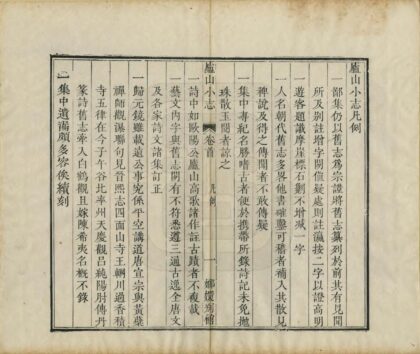 廬山小志凡例
一部集仍以舊志爲宗謹將舊志列於前其有見聞
所及則註增字間値疑處則註瀛按二字以證高明
一遊客題識摩崖標石則不增減一字
一人名朝代舊志多畧他書確鑿可稽者補入其散見
稗說及得之傳聞者不敢傳疑
一集中專紀名勝嗜古者便於攜帶所錄詩記未免拋
珠散玉閱者諒之
廬山小志 卷首 凡例 一 嫏嬛別館
一詩中如歐陽公廬山高歌諸作註古蹟者不複載
一藝文內字與舊志間有不符悉遵三通古逸全唐文
及各家詩文諸集訂正
一歸元鏡雖載遠公事究係平空講道唐宣宗與黃蘗
禪師觀瀑聯句見晉熙志四面山寺王輞川過香積
寺五律在今子午谷北率州天慶觀呂純陽肘傳丹
篆詩舊志牽入白鶴觀且嫁陳希夷名概不錄
一集中遺漏頗多容俟續刻